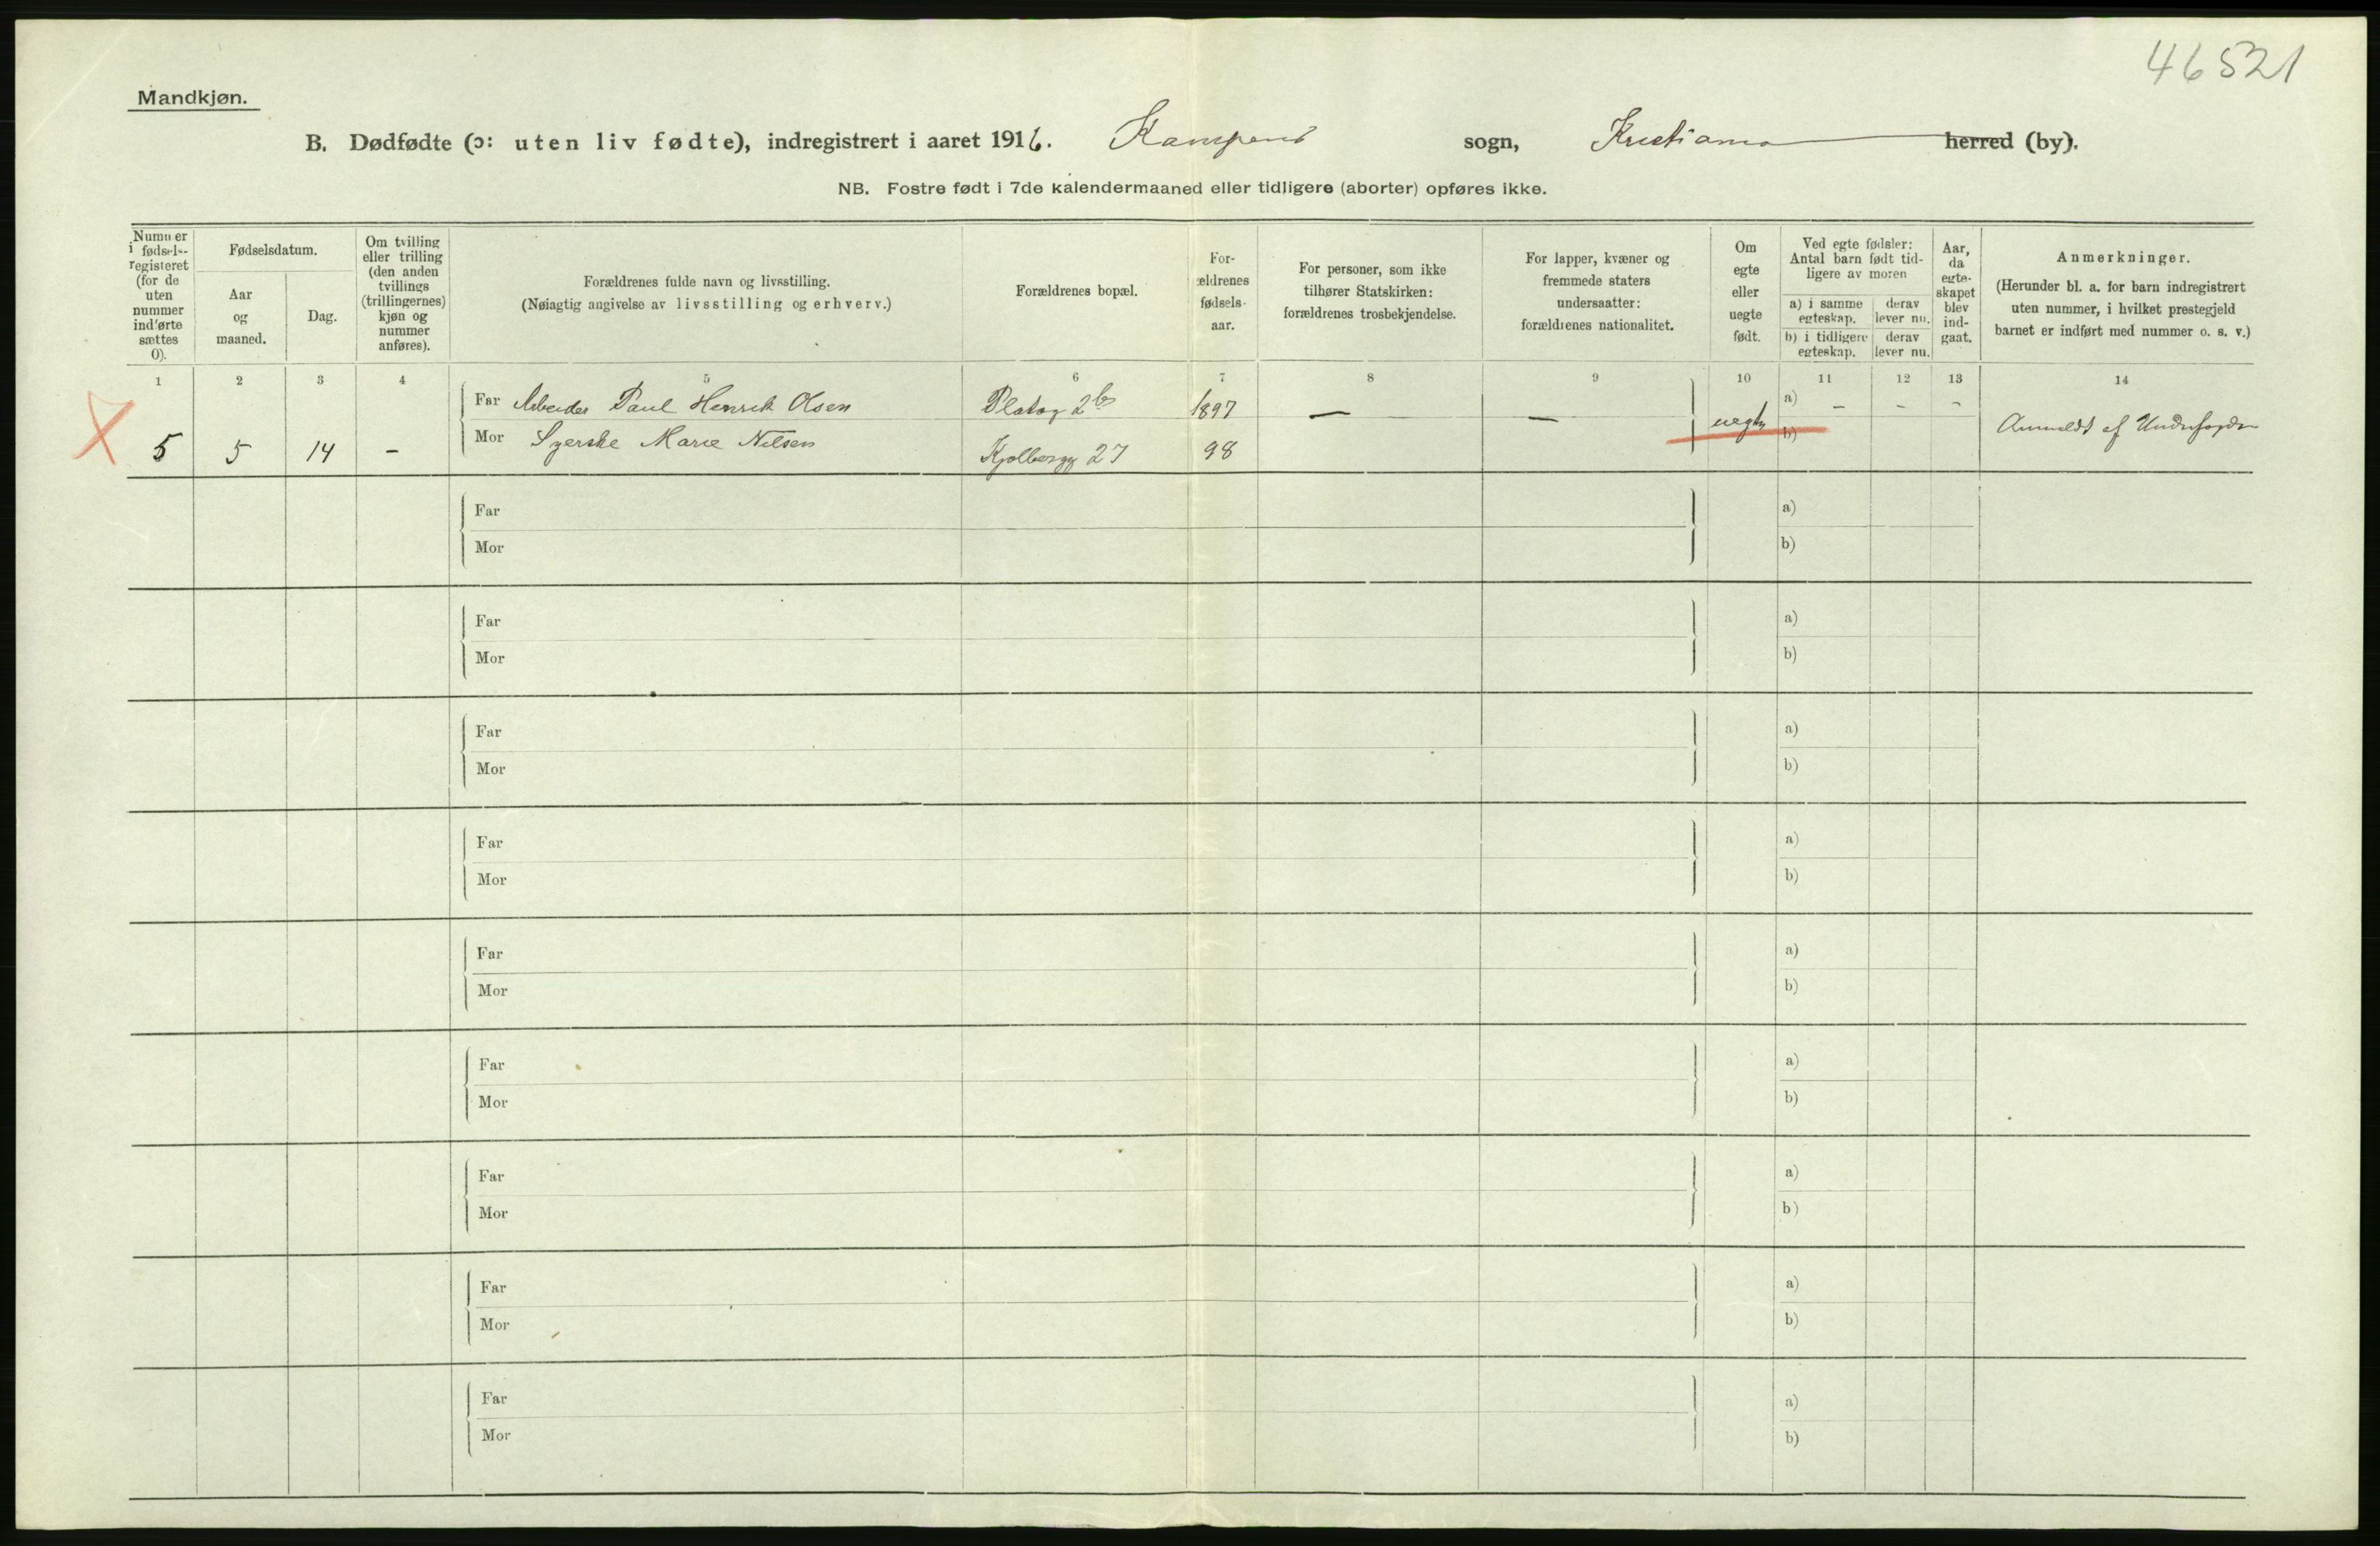 46521
Mandkjøn.
B. Dødfødte (ɔ: uten liv fødte), indregistrert i aaret 1916. Kampens sogn, Kristiania herred (by).
NB. Fostre født i 7de kalendermaaned eller tidligere (aborter) opføres ikke.
Nummer i fødsels-registeret (for de uten nummer indførte sættes 0).
Fødselsdatum.
Aar og maaned.
Dag.
Om tvilling eller trilling (den anden tvillings (trillingernes) kjøn og nummer anføres).
Forældrenes fulde navn og livsstilling.
(Nøiagtig angivelse av livsstilling og erhverv.)
Forældrenes bopæl.
For-ældrenes fødsels-aar.
For personer, som ikke tilhører Statskirken: forældrenes trosbekjendelse.
For lapper, kvæner og fremmede staters undersaatter: forældrenes nationalitet.
Om egte eller uegte født.
Ved egte fødsler: Antal barn født tid-ligere av moren
a) i samme egteskap. derav lever nu.
b) i tidligere egteskap. derav lever nu.
Aar, da egte-skapet blev ind-gaat.
Anmerkninger.
(Herunder bl. a. for barn indregistrert uten nummer, i hvilket prestegjeld barnet er indført med nummer o. s. v.)
1 2 3 4 5 6 7 8 9 10 11 12 13 14
Far Arbeider Paul Henrik Olsen Platog 2b 1897 — — uegte a) – – –
5 5 14 – Mor Syerske Marie Nilsen Kjølbergg 27 98 b) Anmeldt af
Far a)
Mor b)
Far a)
Mor b)
Far a)
Mor b)
Far a)
Mor b)
Far a)
Mor b)
Far a)
Mor b)
Far a)
Mor b)
Far a)
Mor b)
Far a)
Mor b)